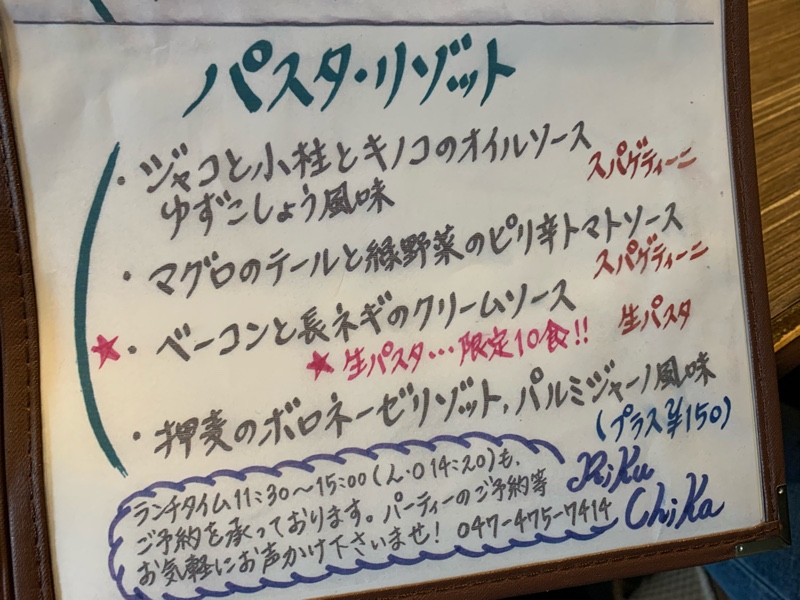 パスタ・リゾット
・ジャコと小柱とキノコのオイルソース
スパゲティーニ
ゆずこしょう風味
・マグロのテールと緑野菜のピリ辛トマトソース
スパゲティーニ
★・ベーコンと長ネギのクリームソース
生パスタ
★生パスタ…限定10食!!
・押麦のボロネーゼリゾット、パルミジャーノ風味
(プラス¥150)
ランチタイム11:30～15:00(L.O14:20)も、
ご予約を承っております。パーティーのご予約等
お気軽にお声かけ下さいませ! 047-475-7414
Riku
Chika